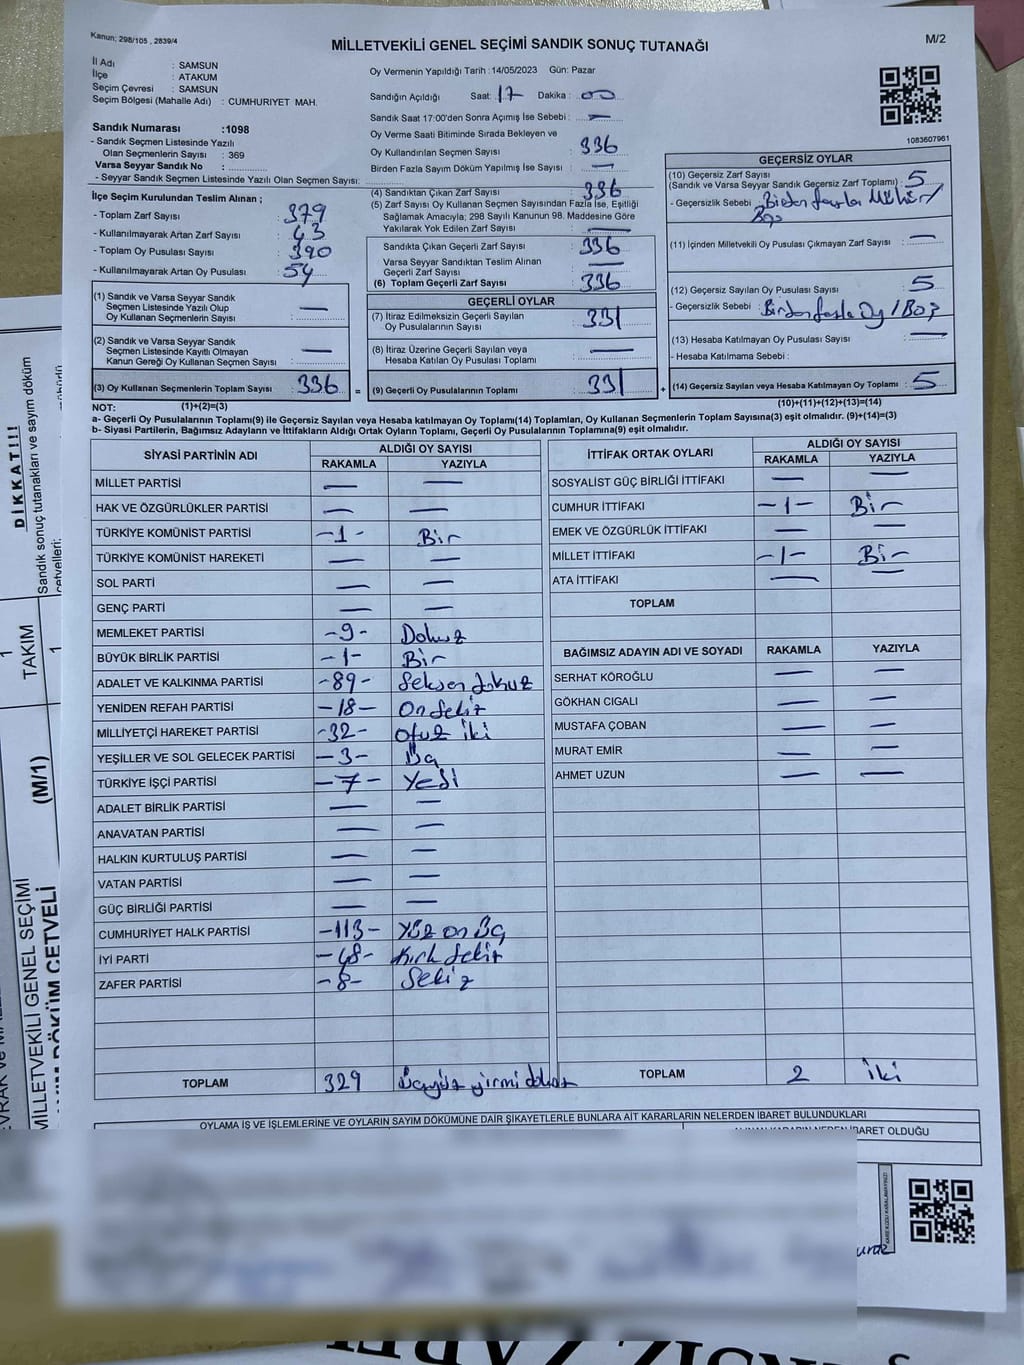 Kanun; 298/105 , 2839/4
MİLLETVEKİLİ GENEL SEÇİMİ SANDIK SONUÇ TUTANAĞI
M/2
İl Adı : SAMSUN
İlçe : ATAKUM
Seçim Çevresi : SAMSUN
Seçim Bölgesi (Mahalle Adı) : CUMHURIYET MAH.
Sandık Numarası :1098
- Sandık Seçmen Listesinde Yazılı
Olan Seçmenlerin Sayısı : 369
Varsa Seyyar Sandık No :
- Seyyar Sandık Seçmen Listesinde Yazılı Olan Seçmen Sayısı:
İlçe Seçim Kurulundan Teslim Alınan ;
- Toplam Zarf Sayısı : 379
- Kullanılmayarak Artan Zarf Sayısı : 43
- Toplam Oy Pusulası : 390
- Kullanılmayarak Artan Oy Pusulası : 54
(1) Sandık ve Varsa Seyyar Sandık
Seçmen Listesinde Yazılı Olup
Oy Kullanan Seçmenlerin Sayısı : —
(2) Sandık ve Varsa Seyyar Sandık
Seçmen Listesinde Kayıtlı Olmayan
Kanun Gereği Oy Kullanan Seçmen Sayısı : —
(3) Oy Kullanan Seçmenlerin Toplam Sayısı : 336 =
(1)+(2)=(3)
Oy Vermenin Yapıldığı Tarih :14/05/2023 Gün: Pazar
Sandığın Açıldığı Saat: 17 Dakika : 00
Sandık Saat 17:00'den Sonra Açımış İse Sebebi : —
Oy Verme Saati Bitiminde Sırada Bekleyen ve
Oy Kullandırılan Seçmen Sayısı : 336
Birden Fazla Sayım Döküm Yapılmış İse Sayısı : —
(4) Sandıktan Çıkan Zarf Sayısı : 336
(5) Zarf Sayısı Oy Kullanan Seçmen Sayısından Fazla İse, Eşitliği
Sağlamak Amacıyla; 298 Sayılı Kanunun 98. Maddesine Göre
Yakılarak Yok Edilen Zarf Sayısı : —
Sandıkta Çıkan Geçerli Zarf Sayısı : 336
Varsa Seyyar Sandıktan Teslim Alınan
Geçerli Zarf Sayısı : —
(6) Toplam Geçerli Zarf Sayısı : 336
GEÇERLİ OYLAR
(7) İtiraz Edilmeksizin Geçerli Sayılan
Oy Pusulalarının Sayısı : 331
(8) İtiraz Üzerine Geçerli Sayılan veya
Hesaba Katılan Oy Pusulası Toplamı : —
(9) Geçerli Oy Pusulalarının Toplamı : 331 +
1083607961
GEÇERSİZ OYLAR
(10) Geçersiz Zarf Sayısı
(Sandık ve Varsa Seyyar Sandık Geçersiz Zarf Toplamı) : 5
- Geçersizlik Sebebi : Birden fazla Mühür/
Boş
(11) İçinden Milletvekili Oy Pusulası Çıkmayan Zarf Sayısı : —
(12) Geçersiz Sayılan Oy Pusulası Sayısı : 5
- Geçersizlik Sebebi : Birden fazla Oy / Boş
(13) Hesaba Katılmayan Oy Pusulası Sayısı : —
- Hesaba Katılmama Sebebi :
(14) Geçersiz Sayılan veya Hesaba Katılmayan Oy Toplamı : 5
(10)+(11)+(12)+(13)=(14)
NOT:
a- Geçerli Oy Pusulalarının Toplamı(9) ile Geçersiz Sayılan veya Hesaba katılmayan Oy Toplamı(14) Toplamları, Oy Kullanan Seçmenlerin Toplam Sayısına(3) eşit olmalıdır. (9)+(14)=(3)
b- Siyasi Partilerin, Bağımsız Adayların ve İttifakların Aldığı Ortak Oyların Toplamı, Geçerli Oy Pusulalarının Toplamına(9) eşit olmalıdır.
SİYASİ PARTİNİN ADI ALDIĞI OY SAYISI
RAKAMLA YAZIYLA
MİLLET PARTİSİ — —
HAK VE ÖZGÜRLÜKLER PARTİSİ — —
TÜRKİYE KOMÜNİST PARTİSİ -1- Bir
TÜRKİYE KOMÜNİST HAREKETİ — —
SOL PARTİ — —
GENÇ PARTİ — —
MEMLEKET PARTİSİ -9- Dokuz
BÜYÜK BİRLİK PARTİSİ -1- Bir
ADALET VE KALKINMA PARTİSİ -89- Seksen dokuz
YENİDEN REFAH PARTİSİ -18- On Sekiz
MİLLİYETÇİ HAREKET PARTİSİ -32- Otuz iki
YEŞİLLER VE SOL GELECEK PARTİSİ -3- Üç
TÜRKİYE İŞÇİ PARTİSİ -7- Yedi
ADALET BİRLİK PARTİSİ — —
ANAVATAN PARTİSİ — —
HALKIN KURTULUŞ PARTİSİ — —
VATAN PARTİSİ — —
GÜÇ BİRLİĞİ PARTİSİ — —
CUMHURİYET HALK PARTİSİ -113- Yüz on Üç
İYİ PARTİ -48- Kırk Sekiz
ZAFER PARTİSİ -8- Sekiz
TOPLAM 329 Üçyüz yirmi dokuz
İTTİFAK ORTAK OYLARI ALDIĞI OY SAYISI
RAKAMLA YAZIYLA
SOSYALIST GÜÇ BİRLİĞİ İTTİFAKI — —
CUMHUR İTTİFAKI -1- Bir
EMEK VE ÖZGÜRLÜK İTTİFAKI — —
MİLLET İTTİFAKI -1- Bir
ATA İTTİFAKI — —
TOPLAM
BAĞIMSIZ ADAYIN ADI VE SOYADI RAKAMLA YAZIYLA
SERHAT KÖROĞLU — —
GÖKHAN CIGALI — —
MUSTAFA ÇOBAN — —
MURAT EMİR — —
AHMET UZUN — —
TOPLAM 2 iki
OYLAMA İŞ VE İŞLEMLERİNE VE OYLARIN SAYIM DÖKÜMÜNE DAİR ŞİKAYETLERLE BUNLARA AİT KARARLARIN NELERDEN İBARET BULUNDUKLARI
ALINAN KARARIN NEDEN İBARET OLDUĞU
DİKKAT!!!
Sandık sonuç tutanakları ve sayım döküm
cetvelleri:
1
TAKIM
1
(M/1)
MİLLETVEKİLİ GENEL SEÇİMİ
DÖKÜM CETVELİ